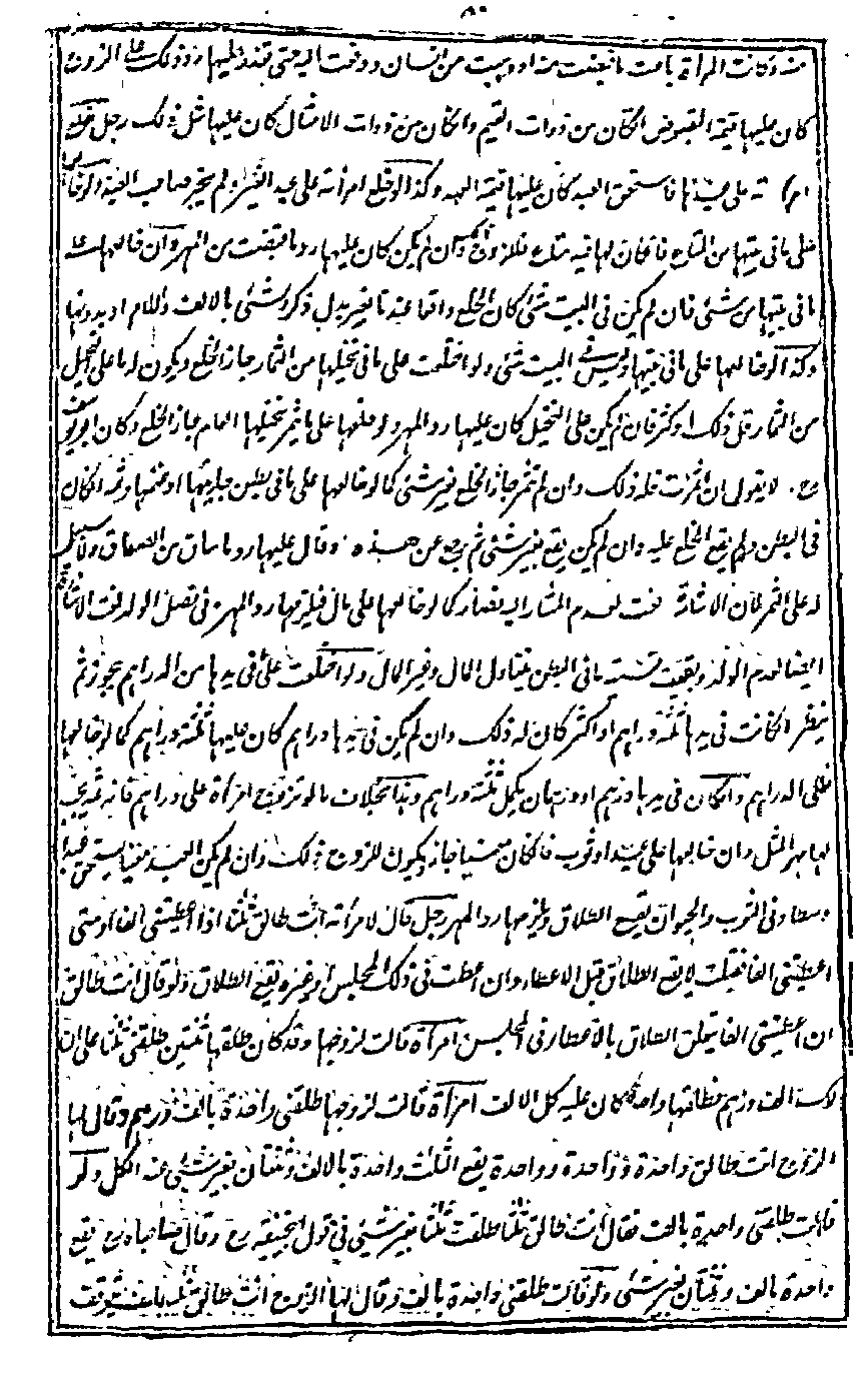 كانت المرأة باعت ما قبضت منه او وهبت من انسان ودفعت اليه حتى تعذر عليها رد ذلك على الزوج
كان عليها قيمة المقبوض ان كان من ذوات القيم وان كان من ذوات الامثال كان عليها مثل ذلك رجل خلع
امرأته على عبد فاستحق العبد كان عليها قيمة العبد وكذا لو خلع امرأته على عبد الغير ولم يجز صاحب العبد ولو خالعها
على ما فى بيتها من المتاع فان كان لها فيه متاع فللزوج ذلك وان لم يكن كان عليها رد ما قبضت من المهر وان خالعها على
ما فى بيتها من شئ فان لم يكن فى البيت شئ كان الخلع واقعا عندنا بغير بدل
وكذا لو خالعها على ما فى بيتها وليس فى البيت شئ ولو اختلعت على ما فى نخيلها من الثمار جاز الخلع ويكون له ما على النخيل
من الثمار قل ذلك او كثر فان لم يكن على النخيل كان عليها رد المهر ولو خلعها على ما يثمر نخيلها العام جاز الخلع وكان ابو يوسف
رح لا يقول ان اثمرت فله ذلك وان لم تثمر جاز الخلع بغير شئ كما لو خالعها على ما فى بطن جاريتها او غنمها وثمه ان كان
فى البطن ولد يقع الخلع عليه وان لم يكن يقع بغير شئ ثم رجع عن هذه وقال عليها رد ما ساق من الصداق ولا سبيل
له على الثمر لان الاشارة لغت لعدم المشار اليه فصار كما لو خالعها على مال فيلزمها رد المهر فى فصل الولد لغت الاشارة
ايضا لعدم الولد وبقيت تسمية ما فى البطن يتناول المال وغير المال ولو اختلعت على ما فى يدها من الدراهم يجوز ثم
ينظر ان كانت فى يدها ثلثة دراهم او اكثر كان له ذلك وان لم يكن فى يدها دراهم كان عليها ثلثة دراهم كما لو خالعها
على الدراهم وان كان فى يدها درهم او درهمان يكمل ثلثة دراهم وهذا بخلاف ما لو تزوج امرأة على دراهم فانه ثمه يجب
لها مهر المثل وان خالعها على عبد او ثوب فان كان معينا جاز ويكون للزوج ذلك وان لم يكن العبد معينا يستحق عبدا
وسطا وفى الثوب والحيوان يقع الطلاق ويلزمها رد المهر رجل قال لامرأته انت طالق ثلثا اذا اعطيتنى الفا او متى
اعطيتنى الفا فقبلت لا يقع الطلاق قبل الاعطاء وان اعطت فى ذلك المجلس او غيره يقع الطلاق ولو قال انت طالق
ان اعطيتنى الفا يتعلق الطلاق بالاعطاء فى المجلس امرأة قالت لزوجها وقد كان طلقها ثنتين طلقنى ثلثا على ان
لك الف درهم فطلقها واحدة كان عليه كل الالف امرأة قالت لزوجها طلقنى واحدة بالف درهم وقال لها
الزوج انت طالق واحدة وواحدة وواحدة يقع الثلث واحدة بالالف وثنتان بغير شئ عند الكل ولو
قالت طلقنى واحدة بالف فقال انت طالق ثلثا طلقت ثلثا بغير شئ فى قول ابى حنيفة رح وقال صاحباه رح يقع
واحدة بالف وثنتان بغير شئ ولو قالت طلقنى واحدة بالف وقال لها الزوج انت طالق ثلثا بالف